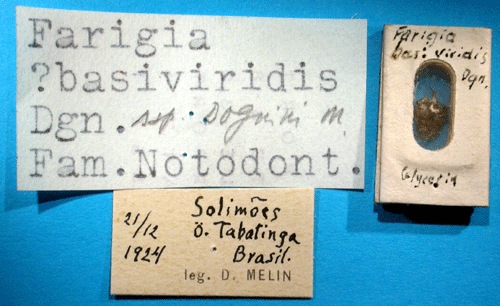 Farigia
?basiviridis
Dgn. ssp. Dognini m.
Fam. Notodont.
Farigia
basiviridis
Dgn.
Glycerin
21/12
1924
Solimões
ö. Tabatinga
Brasil.
leg. D. MELIN